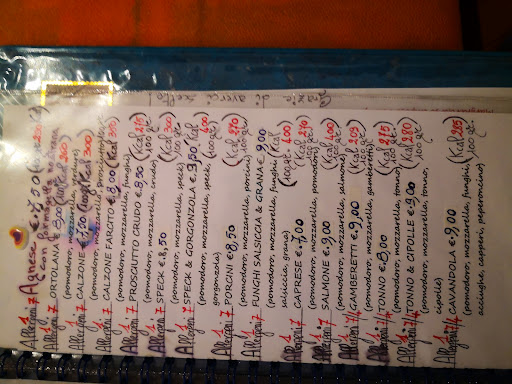 Grazie di averci scelto!
Allergeni 1 7 Agnese €.7,50
Allergeni 1 7 ORTOLANA (Kcal 260)
(pomodoro, mozzarella, verdure)
Allergeni 1 7 CALZONE €.7,00 (Kcal 300)
(pomodoro, mozzarella, prosciutto)
Allergeni 1 7 CALZONE FARCITO €.8,00 (Kcal
Allergeni 1 7 PROSCIUTTO CRUDO €.8,50 (Kcal 275
(pomodoro, mozzarella, crudo) 100 gr.
Allergeni 1 7 SPECK €.8,50 (Kcal 300
(pomodoro, mozzarella, speck) 100 gr.
Allergeni 1 7 SPECK & GORGONZOLA €.9,50 (Kcal 400
(pomodoro, mozzarella, speck, 100 gr.
gorgonzola)
Allergeni 1 7 PORCINI €.8,50 (Kcal 270
(pomodoro, mozzarella, porcini) 100 gr.
Allergeni 1 7 FUNGHI SALSICCIA & GRANA €.9,00
(pomodoro, mozzarella, funghi, (Kcal
salsiccia, grana) 100 gr. 400)
Allergeni 1/7 CAPRESE €.7,00 (Kcal 270
(pomodoro, mozzarella, pomodoro) 100 gr.
Allergeni 1/7 SALMONE €.9,00 (Kcal
(pomodoro, mozzarella, salmone) 100 gr.
GAMBERETTI €.9,00 (Kcal
(pomodoro, mozzarella, gamberetti) 100 gr.
TONNO €.8,00 (Kcal 275
(pomodoro, mozzarella, tonno) 100 gr.
TONNO & CIPOLLE €.9,00 (Kcal 280
(pomodoro, mozzarella, tonno, 100 gr.
cipolle)
CAVANDOLA €.9,00 (Kcal 285
(pomodoro, mozzarella, funghi, 100 gr.
acciughe, capperi, peperoncino)